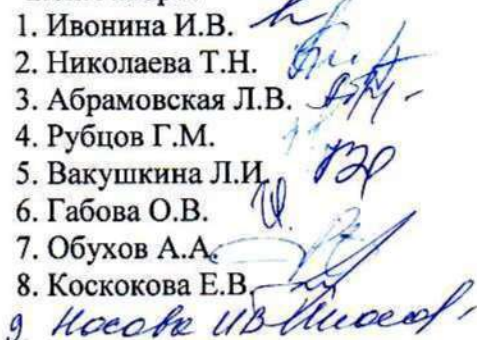 1. Ивонина И.В.
2. Николаева Т.Н.
3. Абрамовская Л.В.
4. Рубцов Г.М.
5. Вакушкина Л.И.
6. Габова О.В.
7. Обухов А.А.
8. Коскокова Е.В.
9. Носова ИВ